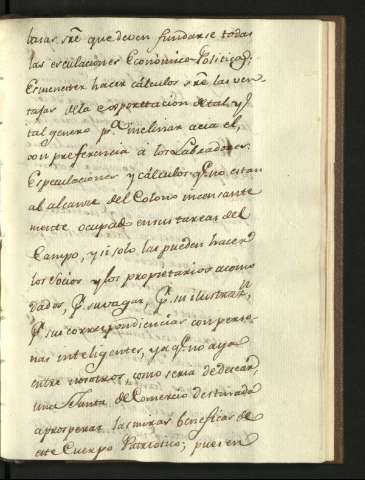 basas, sre que deven fundarse todas
las esculaciones Económico-Politicas.
Es menester hacer cálculos sre las ven
tajas dela exporttacion de tal, y
tal genero pa. inclinar acia el,
con preferencia á los Labradores.
Especulaciones y cálculos qe. no estan
al alcance del Colono incesante
mente ocupado en sus tareas del
Campo, y si solo las pueden hacer
los Socios y los propietarios acomo
dados, pr. su vagar, pr. su ilustran.
pr. sus correspondiencias con perso-
nas inteligentes, ya qe. no aya
entre nosotros, como seria de desear,
una Junta de Comercio destinada
a prosperar las miras beneficas de
este Cuerpo Patriotico; pues en